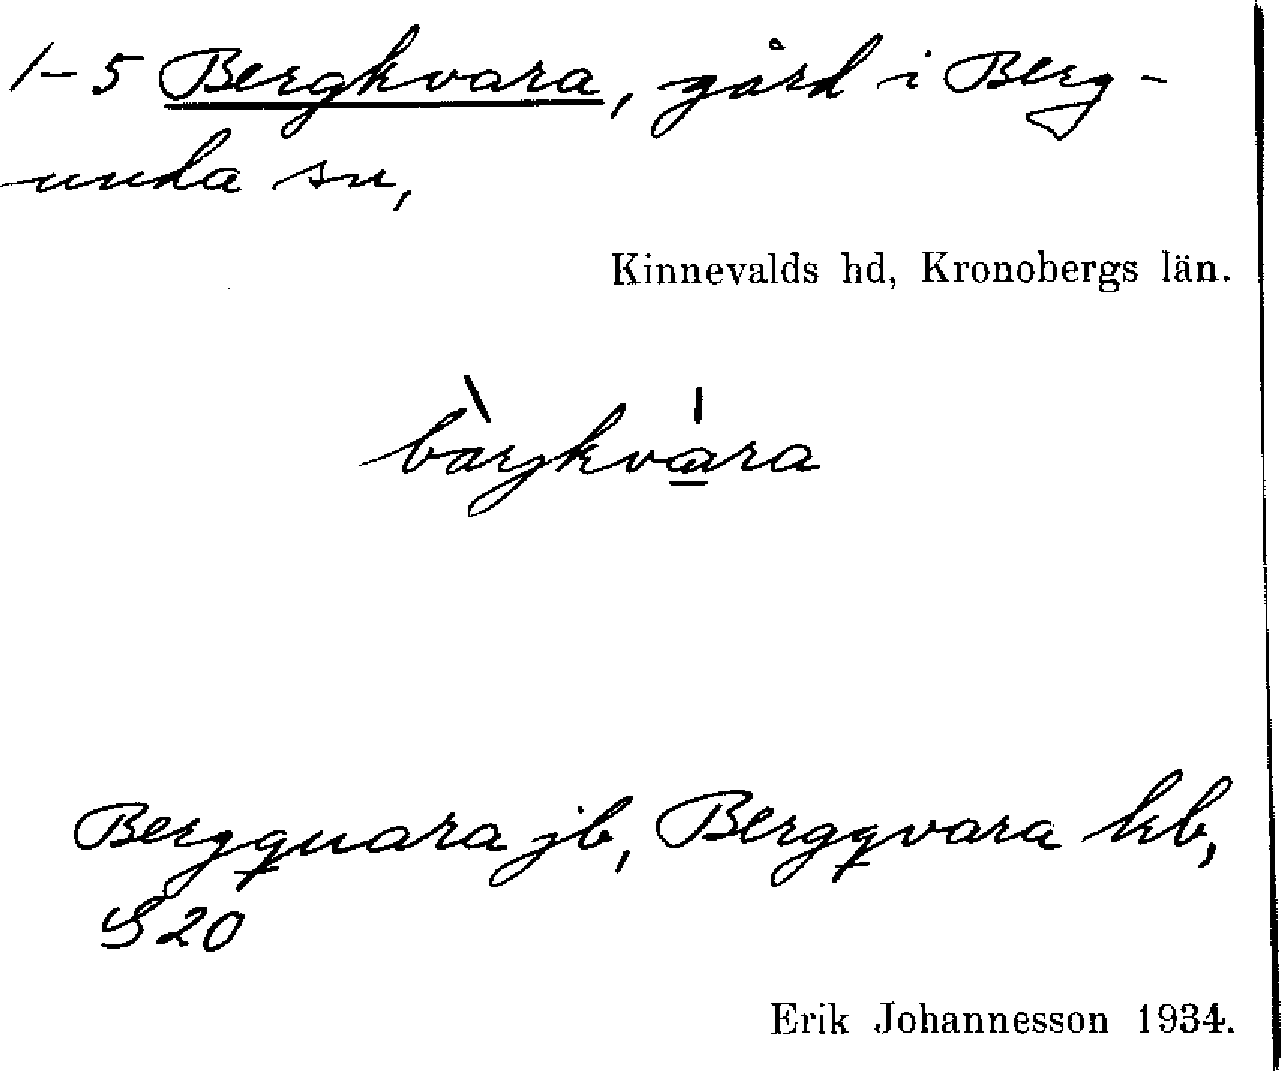 1-5 Bergkvara, gård i Berg-
unda sn,
Kinnevalds hd, Kronobergs län.
bàrjkvára
Bergquara jb, Bergqvara kb,
S 20
Erik Johannesson 1934.